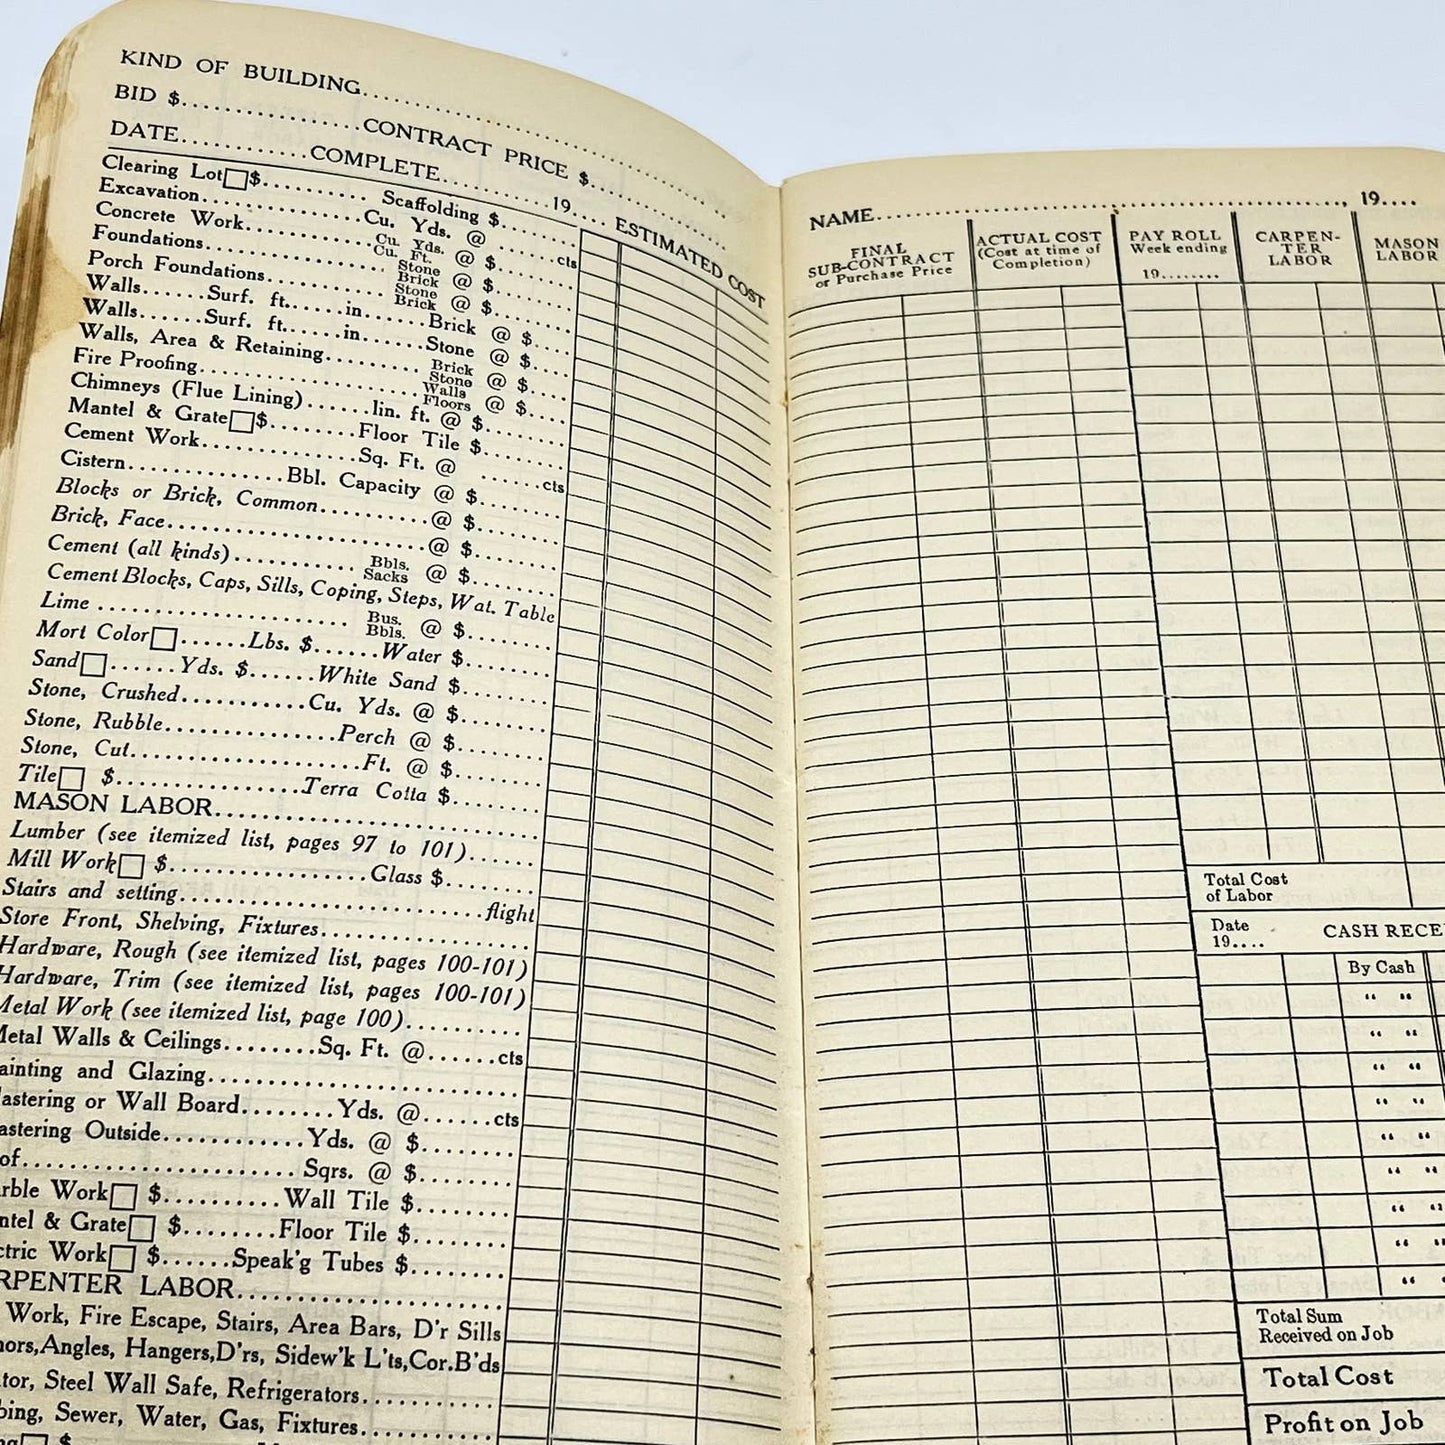 KIND OF BUILDING
BID $ CONTRACT PRICE $
DATE COMPLETE 19
ESTIMATED COST
Clearing Lot $ Scaffolding $
Excavation Cu. Yds. @ cts
Concrete Work Cu. Yds. Cu. Ft. @ $
Foundations Stone Brick @ $
Porch Foundations Stone Brick @ $
Walls Surf. ft. in Brick @ $
Walls Surf. ft. in Stone @ $
Walls, Area & Retaining Brick Stone @ $
Fire Proofing Walls Floors @ $
Chimneys (Flue Lining) lin. ft. @ $
Mantel & Grate $ Floor Tile $
Cement Work Sq. Ft. @ cts
Cistern Bbl. Capacity @ $
Blocks or Brick, Common @ $
Brick, Face @ $
Cement (all kinds) Bbls. Sacks @ $
Cement Blocks, Caps, Sills, Coping, Steps, Wat. Table
Lime Bus. Bbls. @ $
Mort Color Lbs. $ Water $
Sand Yds. $ White Sand $
Stone, Crushed Cu. Yds. @ $
Stone, Rubble Perch @ $
Stone, Cut Ft. @ $
Tile $ Terra Cotta $
MASON LABOR
Lumber (see itemized list, pages 97 to 101)
Mill Work $ Glass $
Stairs and setting flight
Store Front, Shelving, Fixtures
Hardware, Rough (see itemized list, pages 100-101)
Hardware, Trim (see itemized list, pages 100-101)
Metal Work (see itemized list, page 100)
Metal Walls & Ceilings Sq. Ft. @ cts
ainting and Glazing
lastering or Wall Board Yds. @ cts
astering Outside Yds. @ $
of Sqrs. @ $
rble Work $ Wall Tile $
ntel & Grate $ Floor Tile $
ctric Work $ Speak'g Tubes $
RPENTER LABOR
Work, Fire Escape, Stairs, Area Bars, D'r Sills
hors, Angles, Hangers, D'rs, Sidew'k L'ts, Cor. B'ds
tor, Steel Wall Safe, Refrigerators
bing, Sewer, Water, Gas, Fixtures
$
NAME , 19
FINAL
SUB-CONTRACT
or Purchase Price
ACTUAL COST
(Cost at time of
Completion)
PAY ROLL
Week ending
19
CARPEN-
TER
LABOR
MASON
LABOR
Total Cost
of Labor
Date
19
CASH RECE
By Cash
" "
" "
" "
" "
" "
" "
" "
" "
" "
Total Sum
Received on Job
Total Cost
Profit on Job